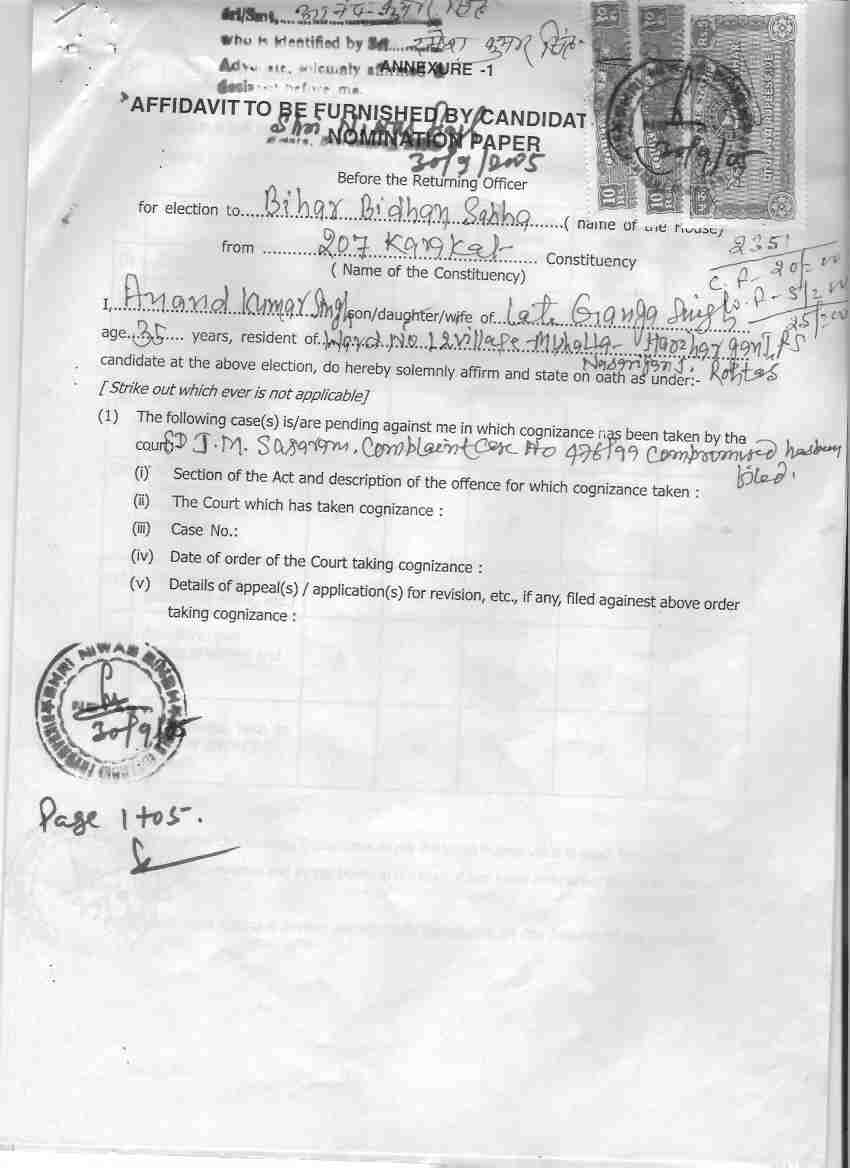 Sri/Smt,.... आनन्द कुमार सिंह
who is identified by Sri..... रमेश कुमार सिंह
Advocate, solemnly affirmed
ANNEXURE -1
declared before me.
AFFIDAVIT TO BE FURNISHED BY CANDIDAT
NOMINATION PAPER
30/9/2005
Before the Returning Officer
for election to Bihar Bidhan Sabha ( name of the House)
from 207 Karakat Constituency
( Name of the Constituency)
2351
C.P- 20/=00
W.P- 5/=00
25/=00
I, Anand Kumar Singh son/daughter/wife of Late Ganga Singh
age 35 years, resident of Ward No 12 village Muholla-
Nasriganj. Rohtas
candidate at the above election, do hereby solemnly affirm and state on oath as under:-
[ Strike out which ever is not applicable]
(1) The following case(s) is/are pending against me in which cognizance has been taken by the
court: SDJ.M. Sasaram, Complaint Case No 476/99 Compromised has been
filed.
(i) Section of the Act and description of the offence for which cognizance taken :
(ii) The Court which has taken cognizance :
(iii) Case No.:
(iv) Date of order of the Court taking cognizance :
(v) Details of appeal(s) / application(s) for revision, etc., if any, filed againest above order
taking cognizance :
SHRI NIWAS SINGH
30/9/05
Page 1 to 5.